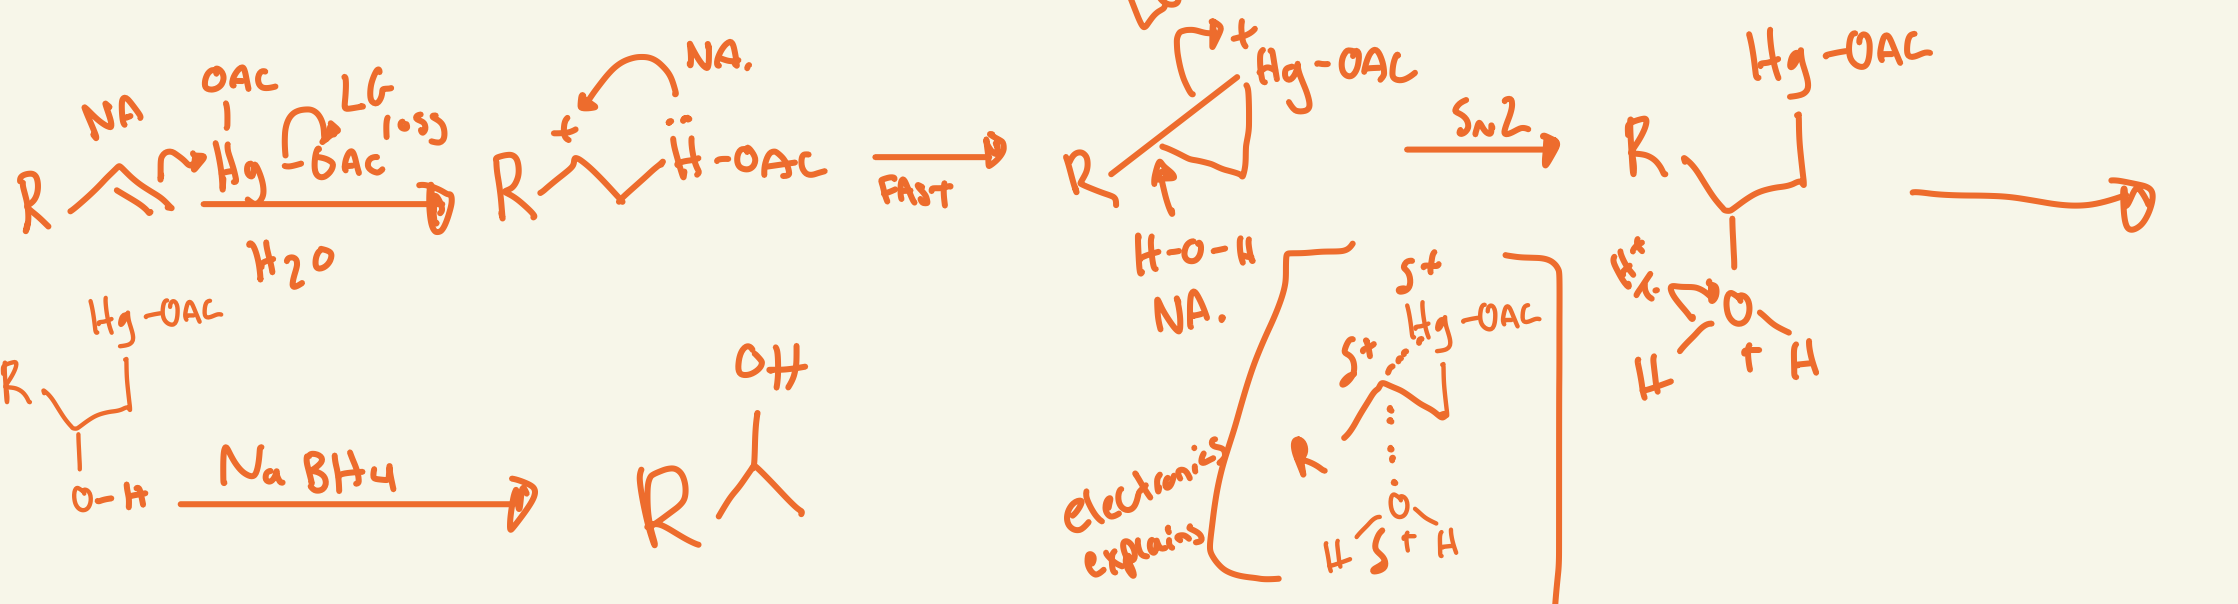 NA
OAC
LG
loss
R
Hg-OAc
H2O
+
NA.
R
H-OAc
FAST
+
Hg-OAC
R
H-O-H
NA.
SN2
Hg-OAC
R
H+
O
H + H
Hg-OAC
R
O-H
NaBH4
OH
R
electronics
explains
δ+
Hg-OAC
δ+
R
O
H δ+ H